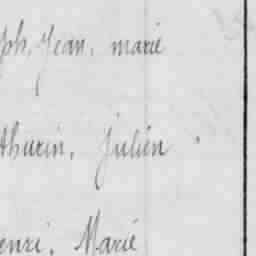 ph, Jean, marie
thurin, Julien
enri, Marie